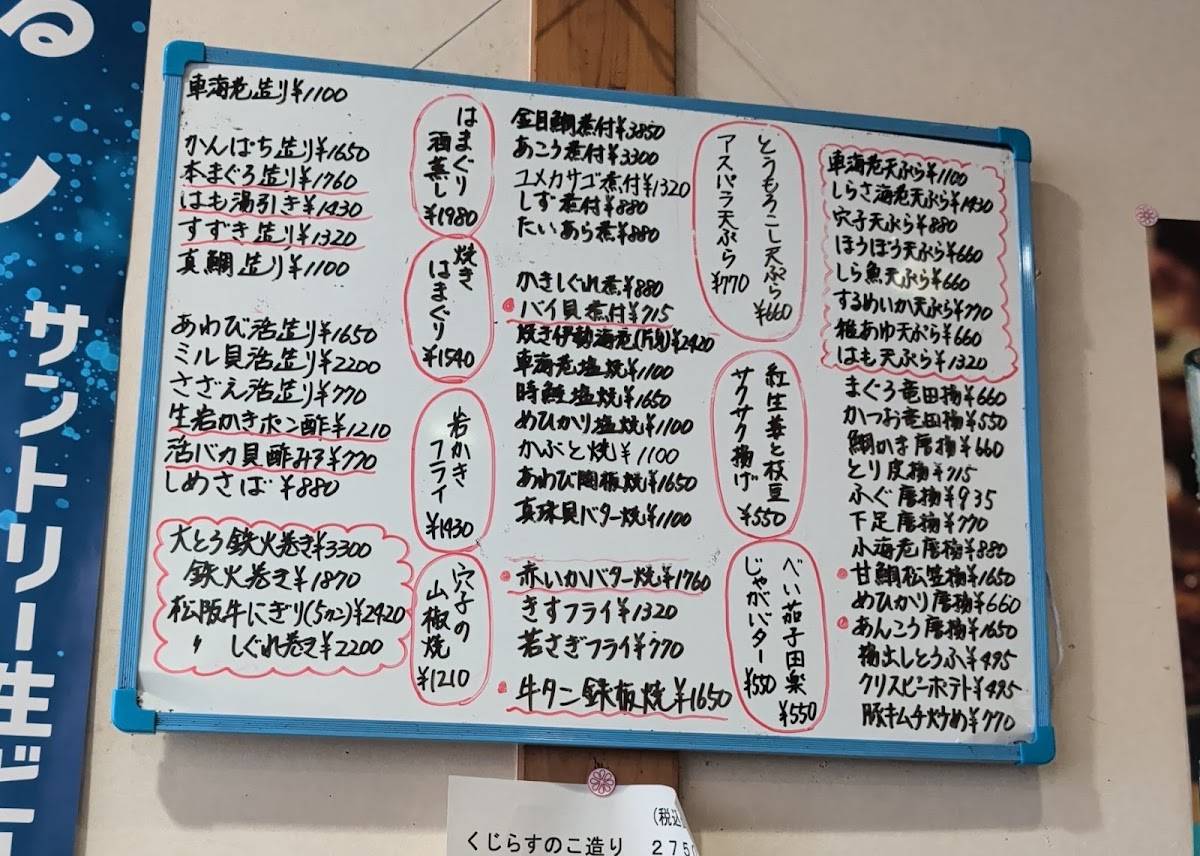 る
ノ
サントリー生ビー
車海老造り¥1100
かんぱち造り¥1650
本まぐろ造り¥1760
はも湯引き¥1430
すずき造り¥1320
真鯛造り¥1100
あわび活造り¥1650
ミル貝活造り¥2200
さざえ活造り¥770
生岩かきポン酢¥1210
活バカ貝酢みそ¥770
しめさば¥880
大とろ鉄火巻き¥3300
鉄火巻き¥1870
松阪牛にぎり(5カン)¥2420
〃 しぐれ巻き¥2200
はまぐり
酒蒸し
¥1980
焼き
はまぐり
¥1540
岩かき
フライ
¥1430
穴子の
山椒焼
¥1210
金目鯛煮付¥3850
あこう煮付¥3300
ユメカサゴ煮付¥1320
しず煮付¥880
たいあら煮¥880
かきしぐれ煮¥880
バイ貝煮付¥715
焼き伊勢海老(片身)¥2420
車海老塩焼¥1100
時鮭塩焼¥1650
めひかり塩焼¥1100
かぶと焼¥1100
あわび陶板焼¥1650
真珠貝バター焼¥1100
赤いかバター焼¥1760
きすフライ¥1320
若さぎフライ¥770
牛タン鉄板焼¥1650
とうもろこし天ぷら¥660
アスパラ天ぷら¥770
紅生姜と枝豆
サクサク揚げ
¥550
べい茄子田楽¥550
じゃがバター¥550
車海老天ぷら¥1100
しらさ海老天ぷら¥1430
穴子天ぷら¥880
ほうぼう天ぷら¥660
しら魚天ぷら¥660
するめいか天ぷら¥770
稚あゆ天ぷら¥660
はも天ぷら¥1320
まぐろ竜田揚¥660
かつお竜田揚¥550
鯛かま唐揚¥660
とり皮揚¥715
ふぐ唐揚¥935
下足唐揚¥770
小海老唐揚¥880
甘鯛松笠揚¥1650
めひかり唐揚¥660
あんこう唐揚¥1650
揚出しとうふ¥495
クリスピーポテト¥495
豚キムチ炒め¥770
(税込
くじらすのこ造り 275